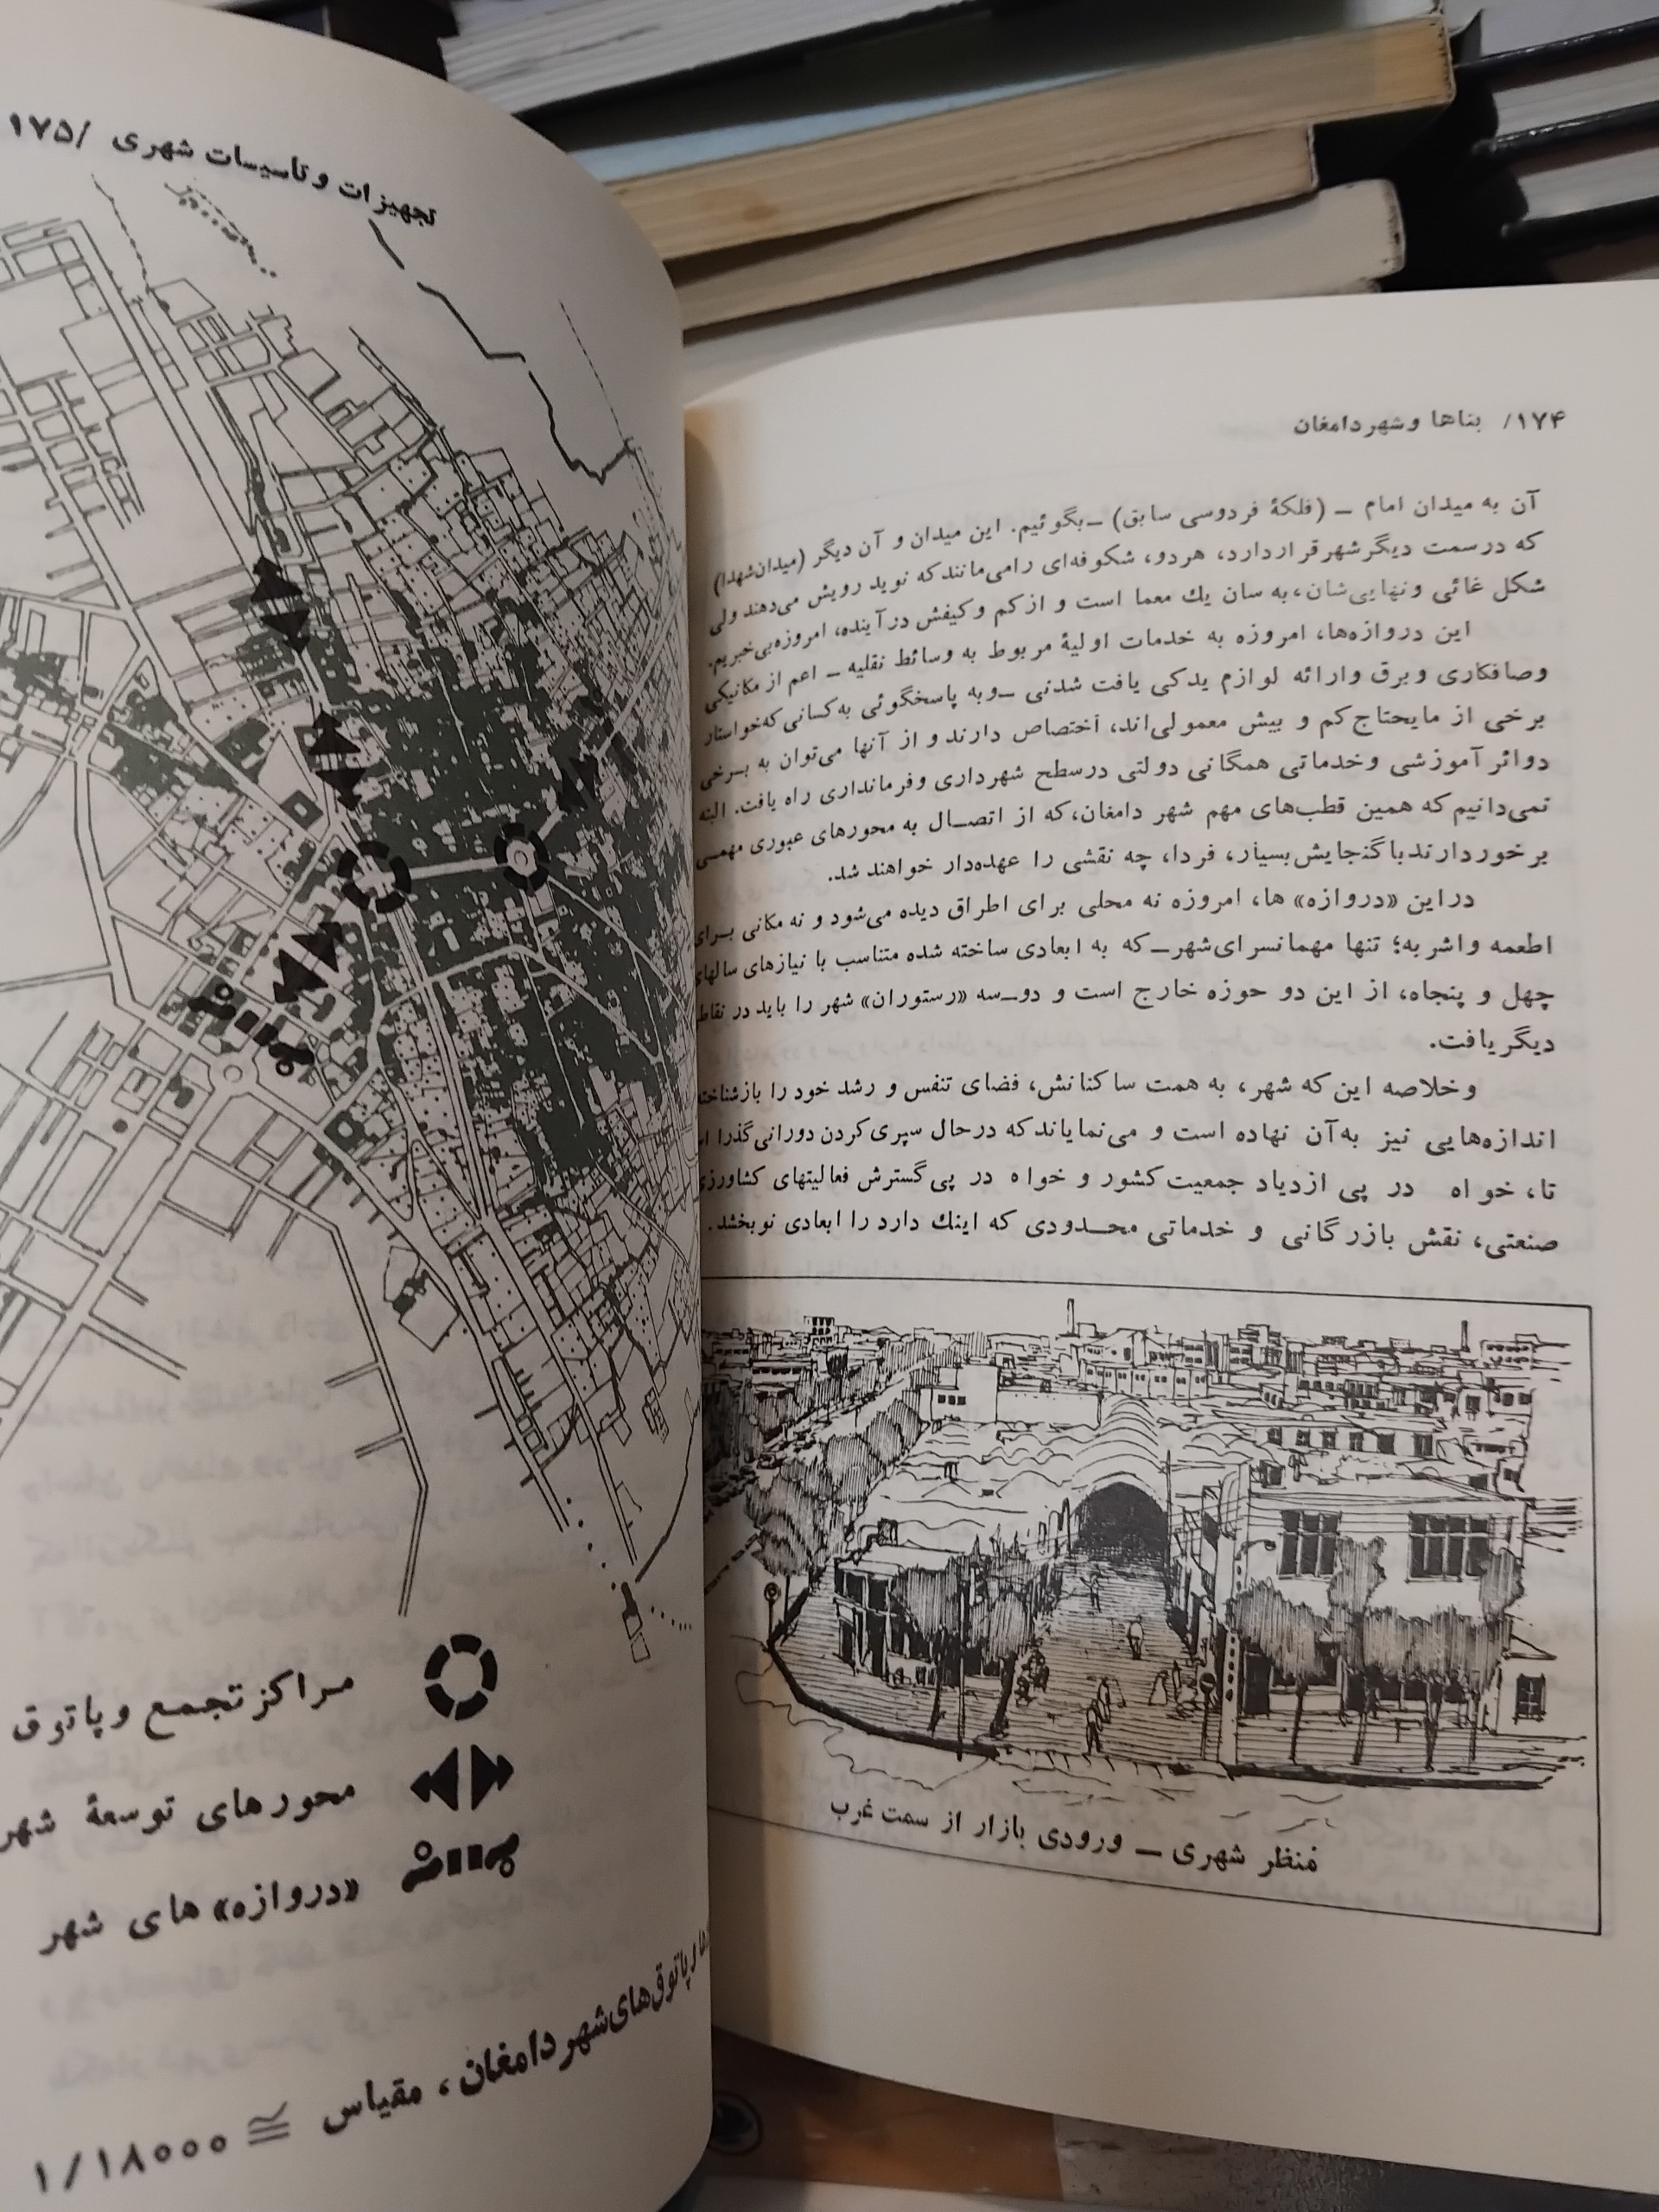 ۱۷۴/ بناها و شهر دامغان
آن به میدان امام – (فلکهٔ فردوسی سابق) –بگوئیم. این میدان و آن دیگر (میدان‌شهدا)
که در سمت دیگر شهر قرار دارد، هر دو، شکوفه‌ای را می‌مانند که نوید رویش می‌دهند ولی
شکل غائی و نهایی‌شان، به سان یك معما است و از کم و کیفش در آینده، امروزه بی‌خبریم.
این دروازه‌ها، امروزه به خدمات اولیهٔ مربوط به وسائط نقلیه – اعم از مکانیکی
وصافکاری و برق وارائه لوازم یدکی یافت شدنی –وبه پاسخگوئی به کسانی که خواستار
برخی از مایحتاج کم و بیش معمولی‌اند، اختصاص دارند و از آنها می‌توان به برخی
دوائر آموزشی وخدماتی همگانی دولتی در سطح شهرداری و فرمانداری راه یافت. البته
نمی‌دانیم که همین قطب‌های مهم شهر دامغان، که از اتصال به محورهای عبوری مهمی
برخوردارند با گنجایش بسیار، فردا، چه نقشی را عهده‌دار خواهند شد.
در این «دروازه» ها، امروزه نه محلی برای اطراق دیده می‌شود و نه مکانی برای
اطعمه واشربه؛ تنها مهمانسرای شهر–که به ابعادی ساخته شده متناسب با نیازهای سالهای
چهل و پنجاه، از این دو حوزه خارج است و دو–سه «رستوران» شهر را باید در نقاط
دیگر یافت.
وخلاصه این که شهر، به همت ساکنانش، فضای تنفس و رشد خود را بازشناخته
اندازه‌هایی نیز به‌آن نهاده است و می‌نمایاند که در حال سپری کردن دورانی گذرا
تا، خواه در پی ازدیاد جمعیت کشور و خواه در پی گسترش فعالیتهای کشاورزی
صنعتی، نقش بازرگانی و خدماتی محدودی که اینك دارد را ابعادی نو بخشد.
منظر شهری – ورودی بازار از سمت غرب
تجهیزات و تاسیسات شهری /۱۷۵
مراکز تجمع و پاتوق
محورهای توسعهٔ شهر
«دروازه» های شهر
و پاتوق‌های شهر دامغان، مقیاس ≅ ۱/۱۸۰۰۰